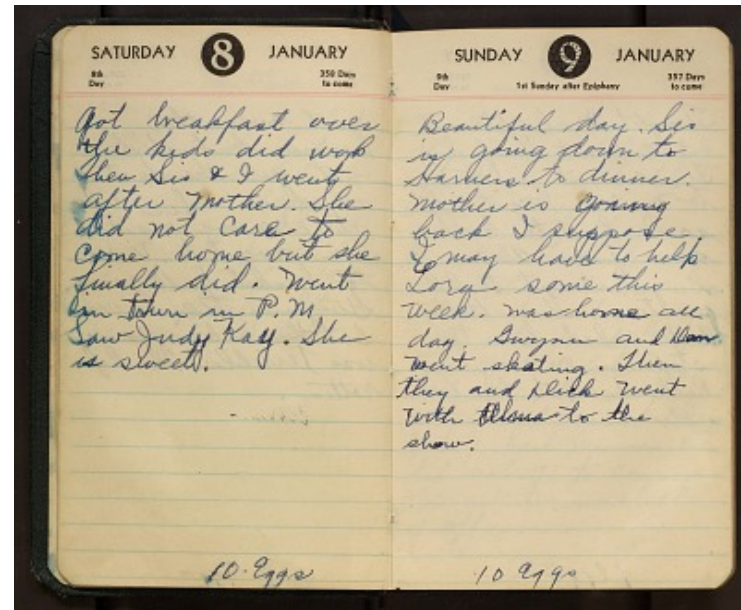 SATURDAY 8 JANUARY
8th Day
358 Days to come
Got breakfast over
the kids did work
then Sis & I went
after Mother. She
did not care to
come home but she
finally did. Went
in town in P.M.
Saw Judy Kay. She
is sweet.
10 Eggs
SUNDAY 9 JANUARY
9th Day
1st Sunday after Epiphany
357 Days to come
Beautiful day. Sis
is going down to
to dinner.
Mother is going
back I suppose.
I may have to help
Lora some this
week. Was home all
day. Gwynn and
went skating. Then
they and Dick went
with to the
show.
10 Eggs